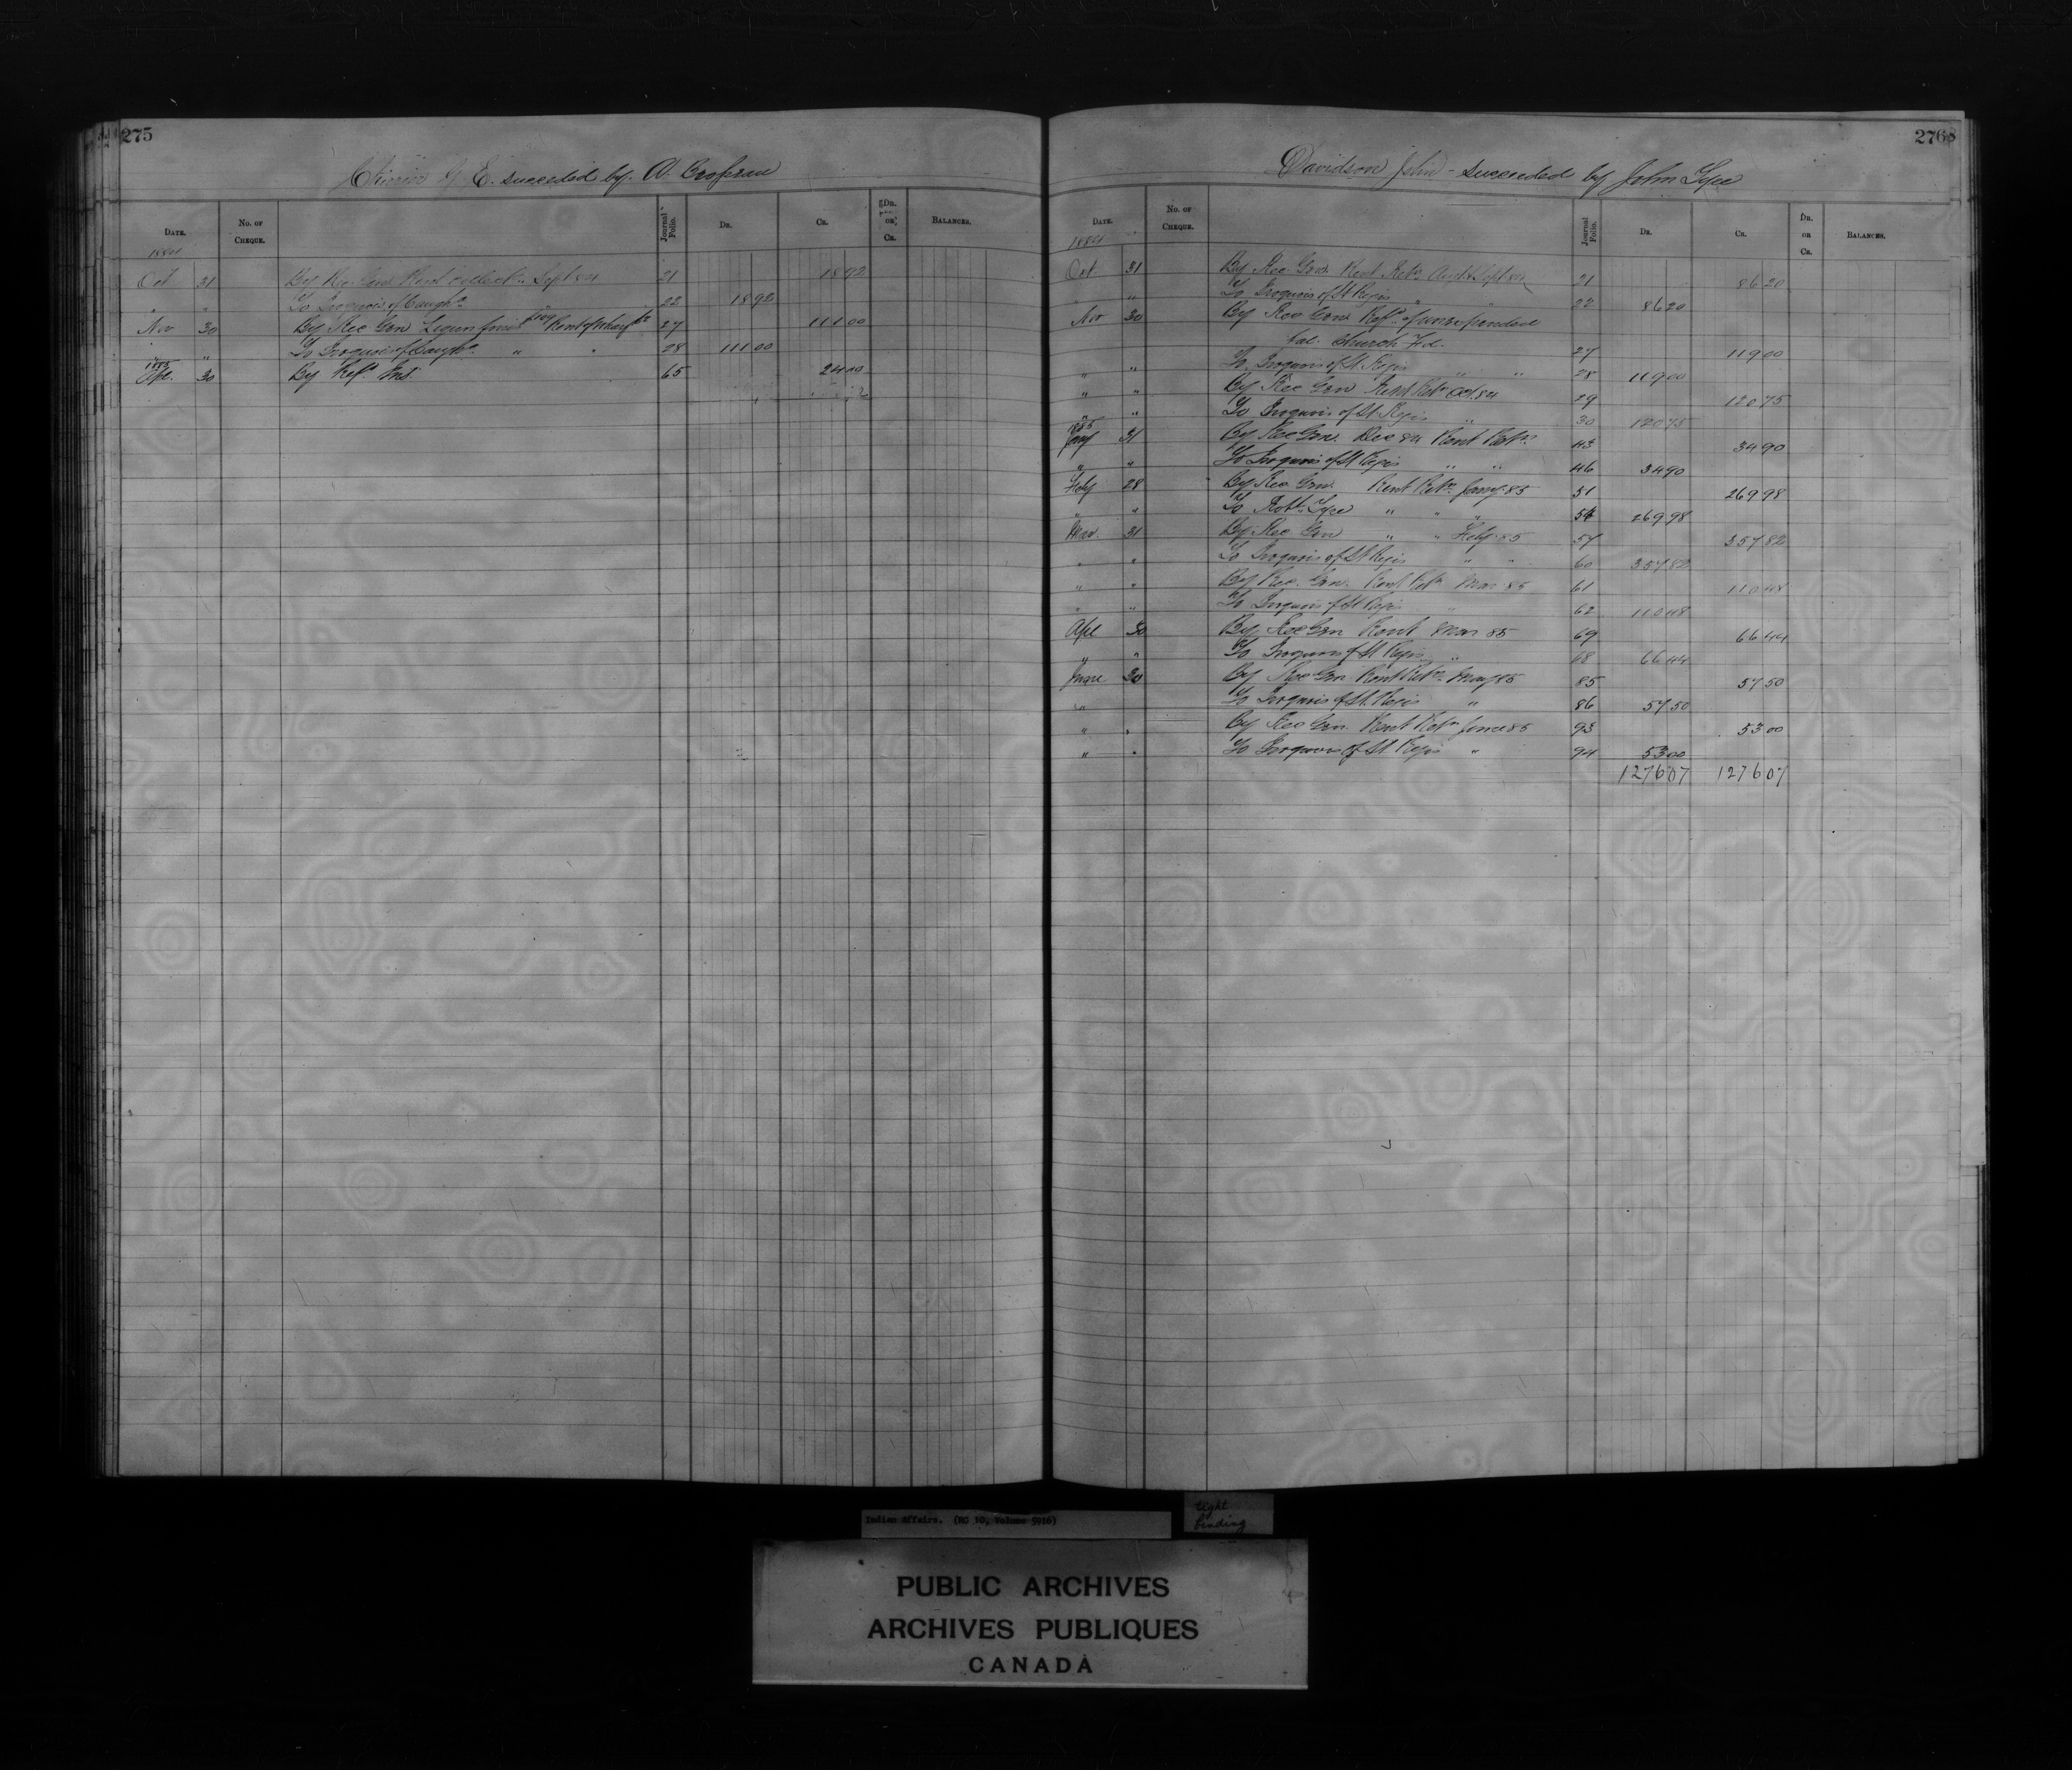 275
succeeded by A. Brosseau
DATE. No. OF CHEQUE. Journal Folio. DR. CR. DR. OR CR. BALANCES.
1884
Oct 31 By Rec Gen Rent Collectn Sept 84 21 18 92
" " To Iroquois of Caughn " 22 18 92
Nov 30 By Rec Gen Rent of Wharf 27 111 00
" " To Iroquois of Caughn " " 28 111 00
1885
Apl. 30 By Refd 65 24 00
276
Davidson John - succeeded by John Tyre
DATE. No. OF CHEQUE. Journal Folio. DR. CR. DR. OR CR. BALANCES.
1884
Oct. 31 By Rec Gen. Rent Retn Aug & Sept 84 21 86 20
" " To Iroquois of St Regis " " 22 86 20
Nov 30 By Rec Gen Refd of unexpended
bal. Church Fd. 27 119 00
" " To Iroquois of St Regis " " 28 119 00
" " By Rec Gen Rent Retn Oct. 84 29 120 75
" " To Iroquois of St Regis " 30 120 75
1885
Jany 31 By Rec Gen. Dec 84 Rent Retn 43 34 90
" " To Iroquois of St Regis " " 46 34 90
Feby 28 By Rec Gen. Rent Retn Jany 85 51 269 98
" " To Robt Tyre " " " 54 269 98
Mar. 31 By Rec Gen " " Feby 85 57 357 82
" " To Iroquois of St Regis " " 60 357 82
" " By Rec. Gen. Rent Retn Mar 85 61 110 48
" " To Iroquois of St Regis " 62 110 48
Apl 30 By Rec Gen Rent Mar 85 69 66 44
" " To Iroquois of St Regis " 68 66 44
June 30 By Rec Gen Rent Retn May 85 85 57 50
" " To Iroquois of St. Regis " 86 57 50
" " By Rec Gen. Rent Retn June 85 93 53 00
" " To Iroquois of St Regis " 94 53 00
1276 07 1276 07
Indian Affairs. (RG 10, Volume 5916)
tight
binding
PUBLIC ARCHIVES
ARCHIVES PUBLIQUES
CANADA